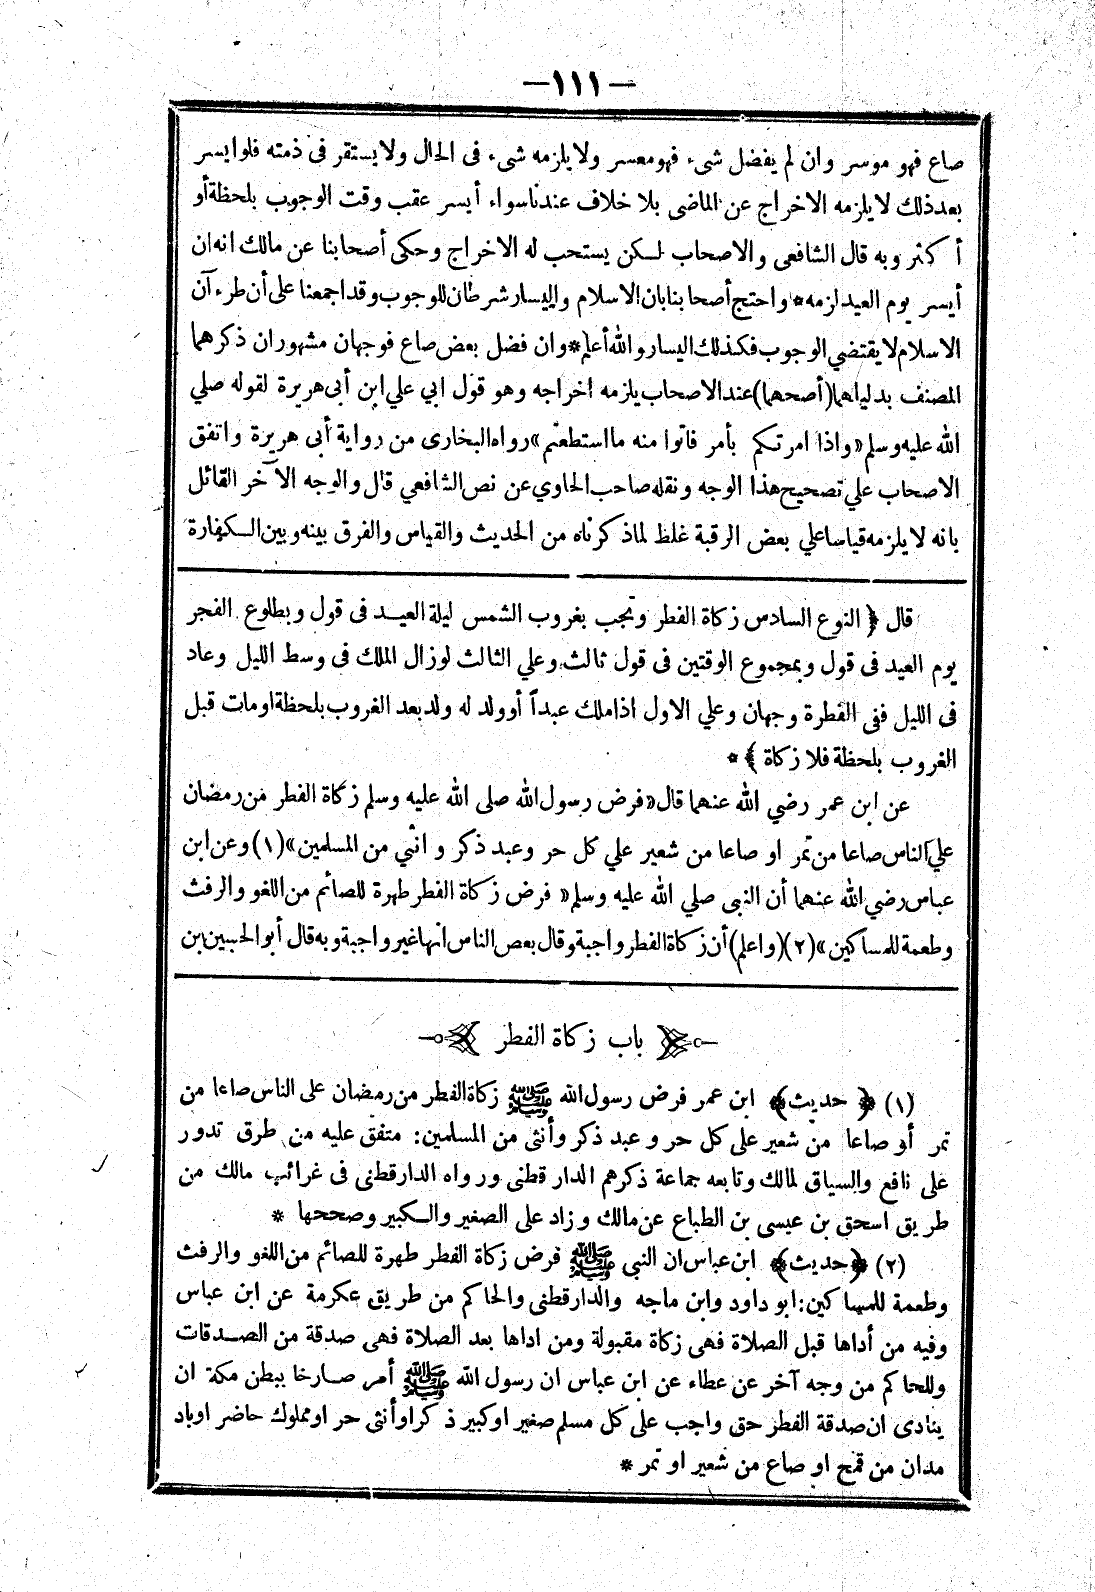 —١١١—
صاع فهو موسر وان لم يفضل شيء فهو معسر ولا يلزمه شيء فى الحال ولا يستقر فى ذمته فلو ايسر
بعد ذلك لا يلزمه الاخراج عن الماضى بلا خلاف عندنا سواء أيسر عقب وقت الوجوب بلحظة أو
أكثر وبه قال الشافعى والاصحاب لكن يستحب له الاخراج وحكى أصحابنا عن مالك انه ان
أيسر يوم العيد لزمه * واحتج أصحابنا بان الاسلام واليسار شرطان للوجوب وقد اجمعنا على أن طرء آن
الاسلام لا يقتضي الوجوب فكذلك اليسار والله أعلم * وان فضل بعض صاع فوجهان مشهوران ذكرهما
المصنف بدليلهما (أصحهما) عند الاصحاب يلزمه اخراجه وهو قول ابي علي ابن أبى هريرة لقوله صلي
الله عليه وسلم «واذا امرتكم بأمر فاتوا منه ما استطعتم» رواه البخارى من رواية أبى هريرة واتفق
الاصحاب علي تصحيح هذا الوجه ونقله صاحب الحاوي عن نص الشافعي قال والوجه الآخر القائل
بانه لا يلزمه قياسا علي بعض الرقبة غلط لما ذكرناه من الحديث والقياس والفرق بينه وبين الكفارة
قال ﴿ النوع السادس زكاة الفطر وتجب بغروب الشمس ليلة العيد فى قول وبطلوع الفجر
يوم العيد فى قول وبمجموع الوقتين فى قول ثالث وعلي الثالث لو زال الملك فى وسط الليل وعاد
فى الليل ففى الفطرة وجهان وعلي الاول اذا ملك عبداً أو ولد له ولد بعد الغروب بلحظة او مات قبل
الغروب بلحظة فلا زكاة ﴾ *
عن ابن عمر رضي الله عنهما قال «فرض رسول الله صلى الله عليه وسلم زكاة الفطر من رمضان
علي الناس صاعا من تمر او صاعا من شعير علي كل حر وعبد ذكر و انثي من المسلمين» (١) وعن ابن
عباس رضي الله عنهما أن النبى صلي الله عليه وسلم « فرض زكاة الفطر طهرة للصائم من اللغو والرفث
وطعمة للمساكين» (٢) (واعلم) أن زكاة الفطر واجبة وقال بعص الناس انها غير واجبة وبه قال أبو الحسين بن
باب زكاة الفطر
(١) ﴿ حديث﴾ ابن عمر فرض رسول الله ﷺ زكاة الفطر من رمضان على الناس صاعا من
تمر أو صاعا من شعير على كل حر و عبد ذكر وأنثى من المسلمين: متفق عليه من طرق تدور
على نافع والسياق لمالك وتابعه جماعة ذكرهم الدارقطنى ورواه الدارقطنى فى غرائب مالك من
طريق اسحق بن عيسى بن الطباع عن مالك وزاد على الصغير والكبير وصححها *
(٢) ﴿حديث﴾ ابن عباس ان النبى ﷺ فرض زكاة الفطر طهرة للصائم من اللغو والرفث
وطعمة للمساكين: ابو داود وابن ماجه والدارقطنى والحاكم من طريق عكرمة عن ابن عباس
وفيه من أداها قبل الصلاة فهى زكاة مقبولة ومن اداها بعد الصلاة فهى صدقة من الصدقات
وللحاكم من وجه آخر عن عطاء عن ابن عباس ان رسول الله ﷺ أمر صارخا ببطن مكة ان
ينادى ان صدقة الفطر حق واجب على كل مسلم صغير او كبير ذكر او أنثى حر او مملوك حاضر او باد
مدان من قمح او صاع من شعير او تمر *